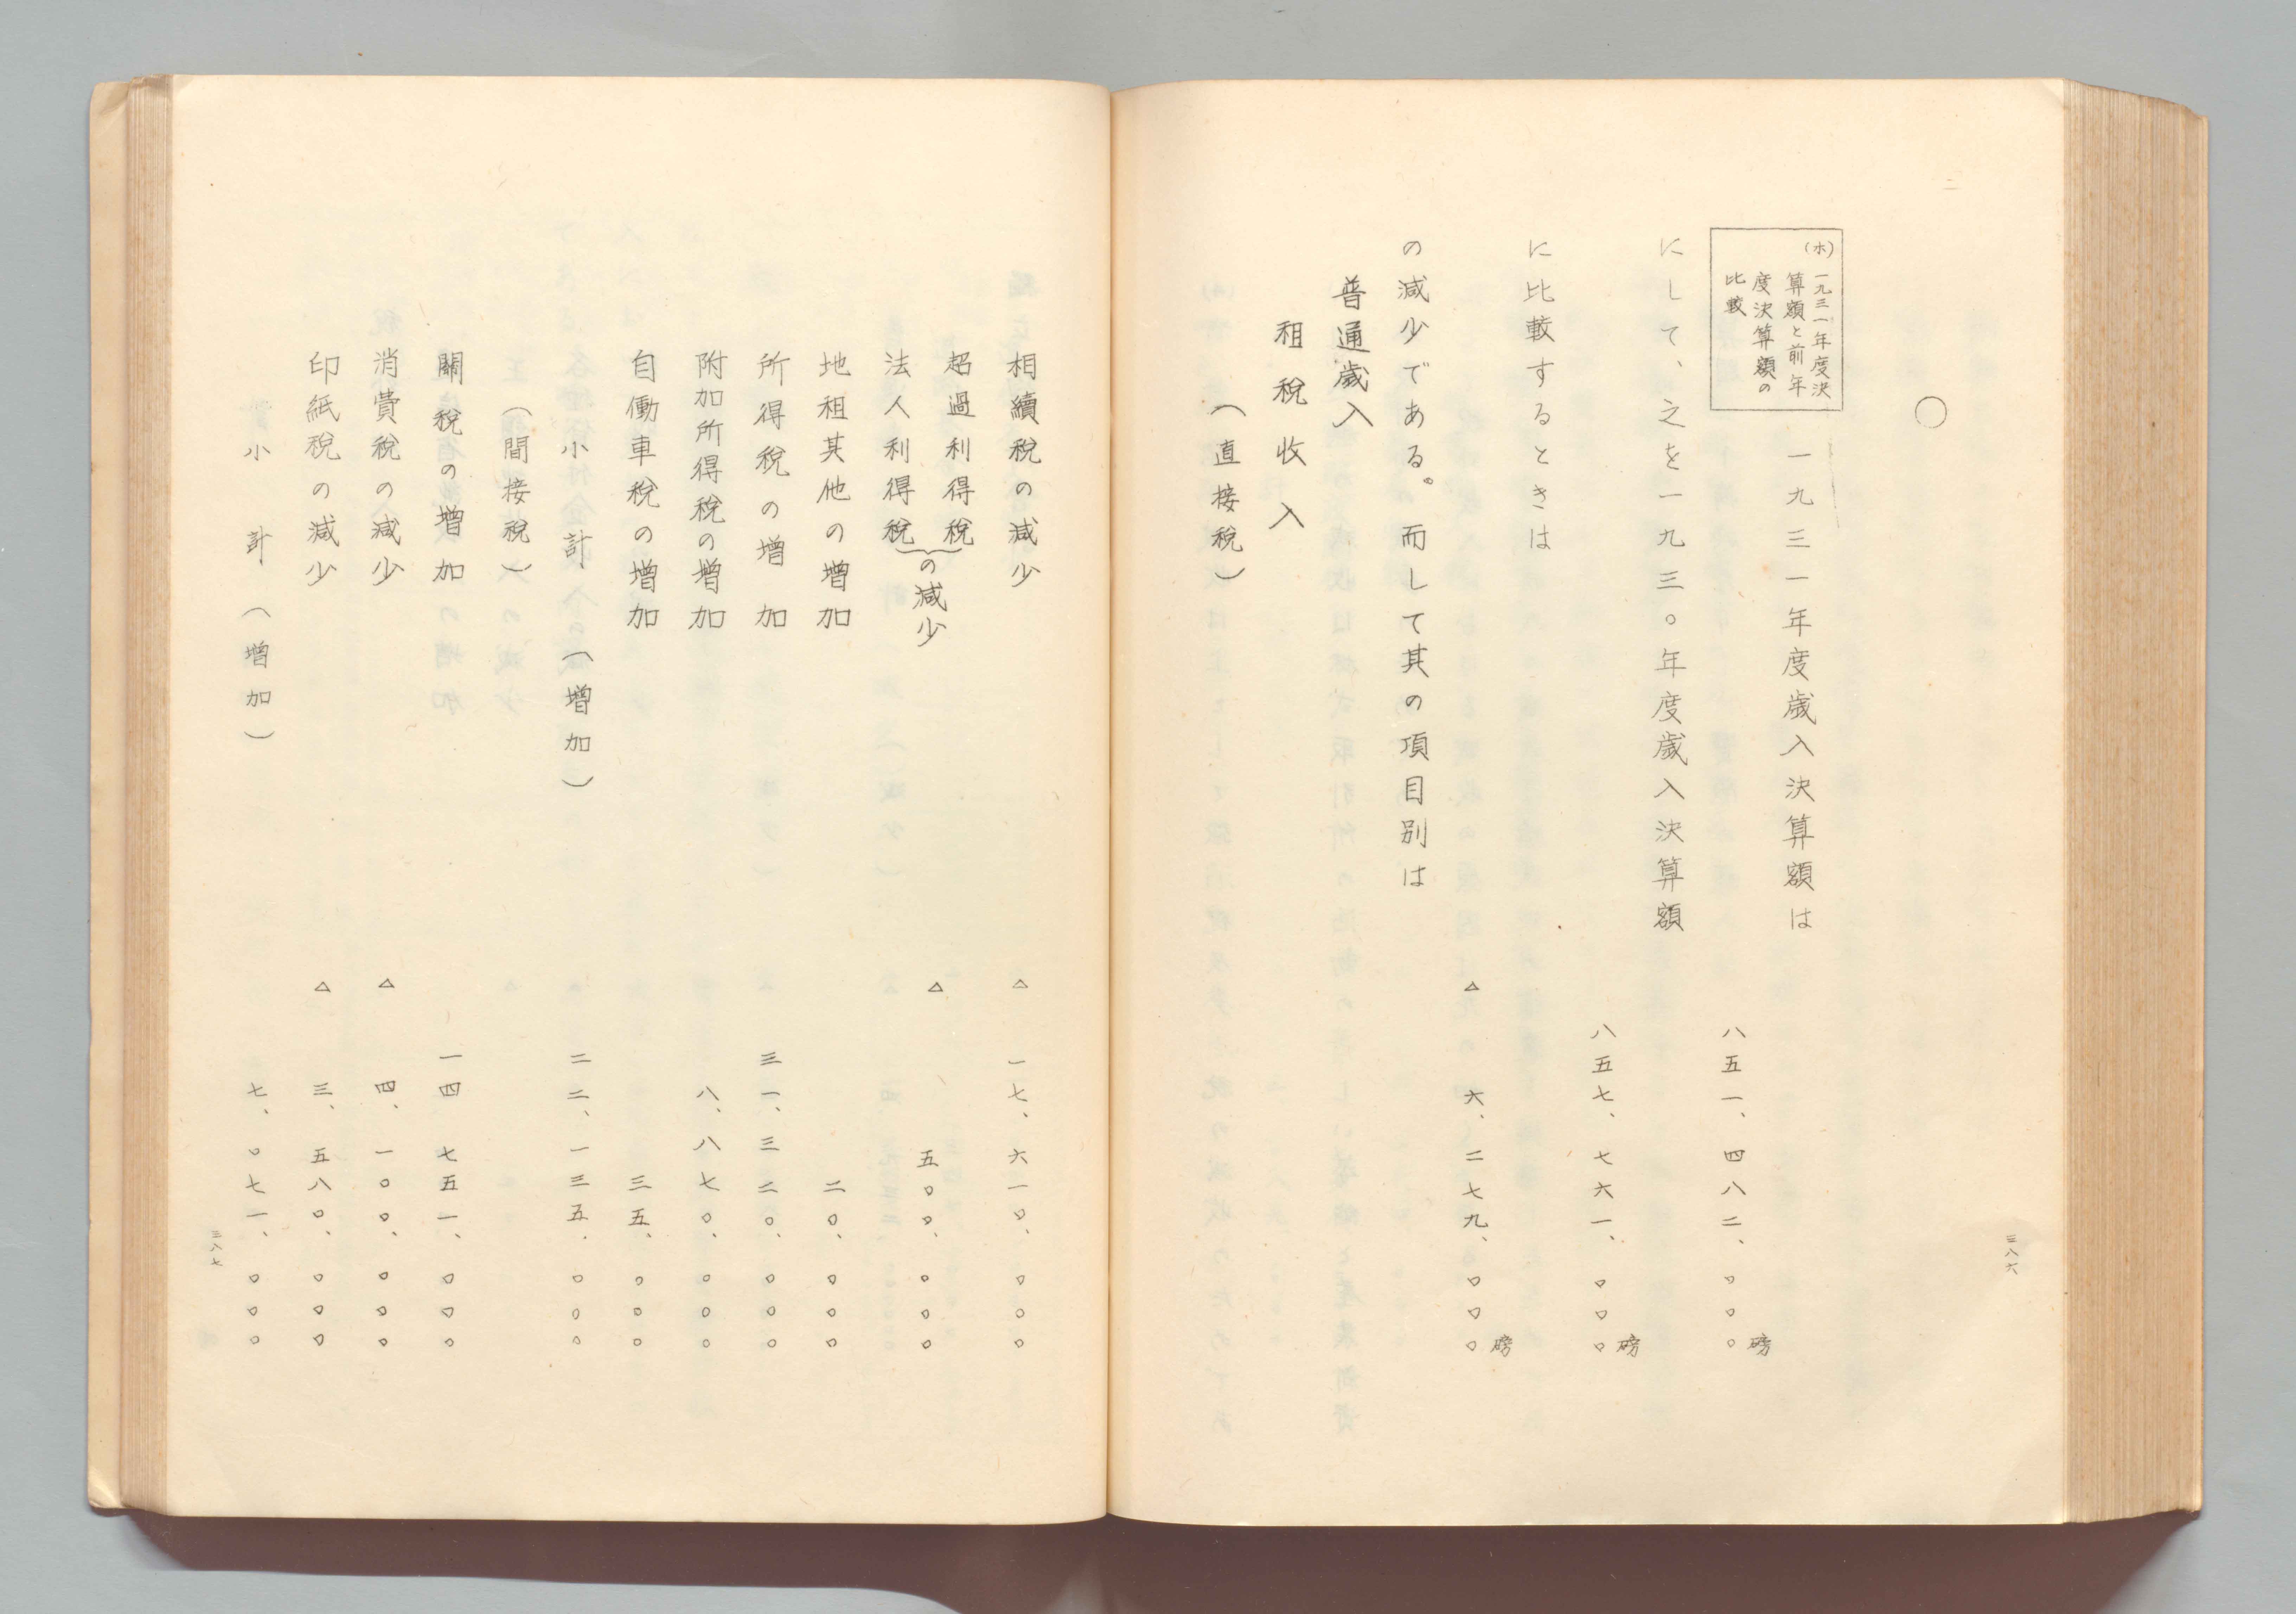 ○
(ホ)一九三一年度決
算額と前年
度決算額の
比較
一九三一年度歳入決算額は
八五一、四八二、〇〇〇磅
にして、之を一九三〇年度歳入決算額
八五七、七六一、〇〇〇磅
に比較するときは
△六、二七九、〇〇〇磅
の減少である。而して其の項目別は
普通歳入
租税収入
(直接税)
三八六
相續税の減少 △一七、六一〇、〇〇〇
超過利得税
法人利得税
の減少 △五〇〇、〇〇〇
地租其他の増加 二〇、〇〇〇
所得税の増加 三一、三二〇、〇〇〇
附加所得税の増加 八、八七〇、〇〇〇
自働車税の増加 三五、〇〇〇
小計(増加) 二二、一三五、〇〇〇
(間接税)
關税の増加 一四七五一、〇〇〇
消費税の減少 △四、一〇〇、〇〇〇
印紙税の減少 △三、五八〇、〇〇〇
小計(増加) 七、〇七一、〇〇〇
三八七